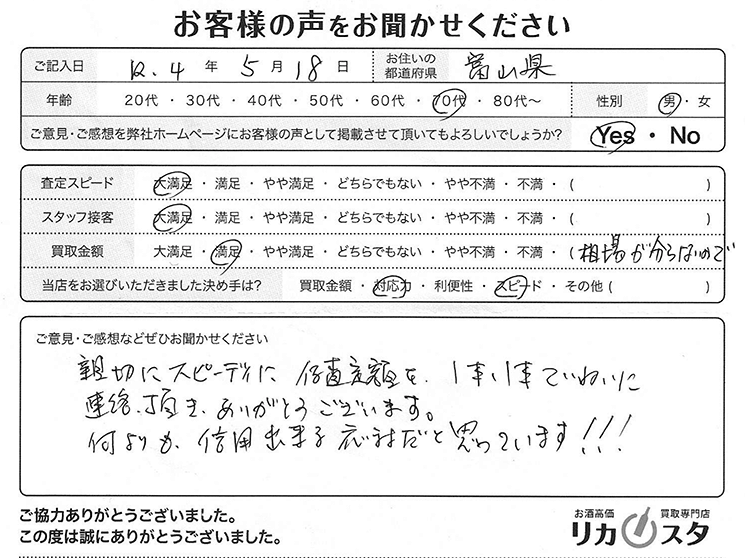 お客様の声をお聞かせください
ご記入日 R.4 年 5 月 18 日 お住いの都道府県 富山県
年齢 20代 ・ 30代 ・ 40代 ・ 50代 ・ 60代 ・ 70代 ・ 80代〜 性別 男 ・ 女
ご意見・ご感想を弊社ホームページにお客様の声として掲載させて頂いてもよろしいでしょうか? Yes ・ No
査定スピード 大満足 ・ 満足 ・ やや満足 ・ どちらでもない ・ やや不満 ・ 不満 ・ ( )
スタッフ接客 大満足 ・ 満足 ・ やや満足 ・ どちらでもない ・ やや不満 ・ 不満 ・ ( )
買取金額 大満足 ・ 満足 ・ やや満足 ・ どちらでもない ・ やや不満 ・ 不満 ・ (相場が分らないので
当店をお選びいただきました決め手は? 買取金額 ・ 対応力 ・ 利便性 ・ スピード ・ その他 ( )
ご意見・ご感想などぜひお聞かせください
親切にスピーディに 査定額を、1本1本ていねいに
連絡、頂き、ありがとうございます。
何よりも、信用出来る だと思っています!!!
ご協力ありがとうございました。
この度は誠にありがとうございました。
お酒高価 買取専門店
リカスタ